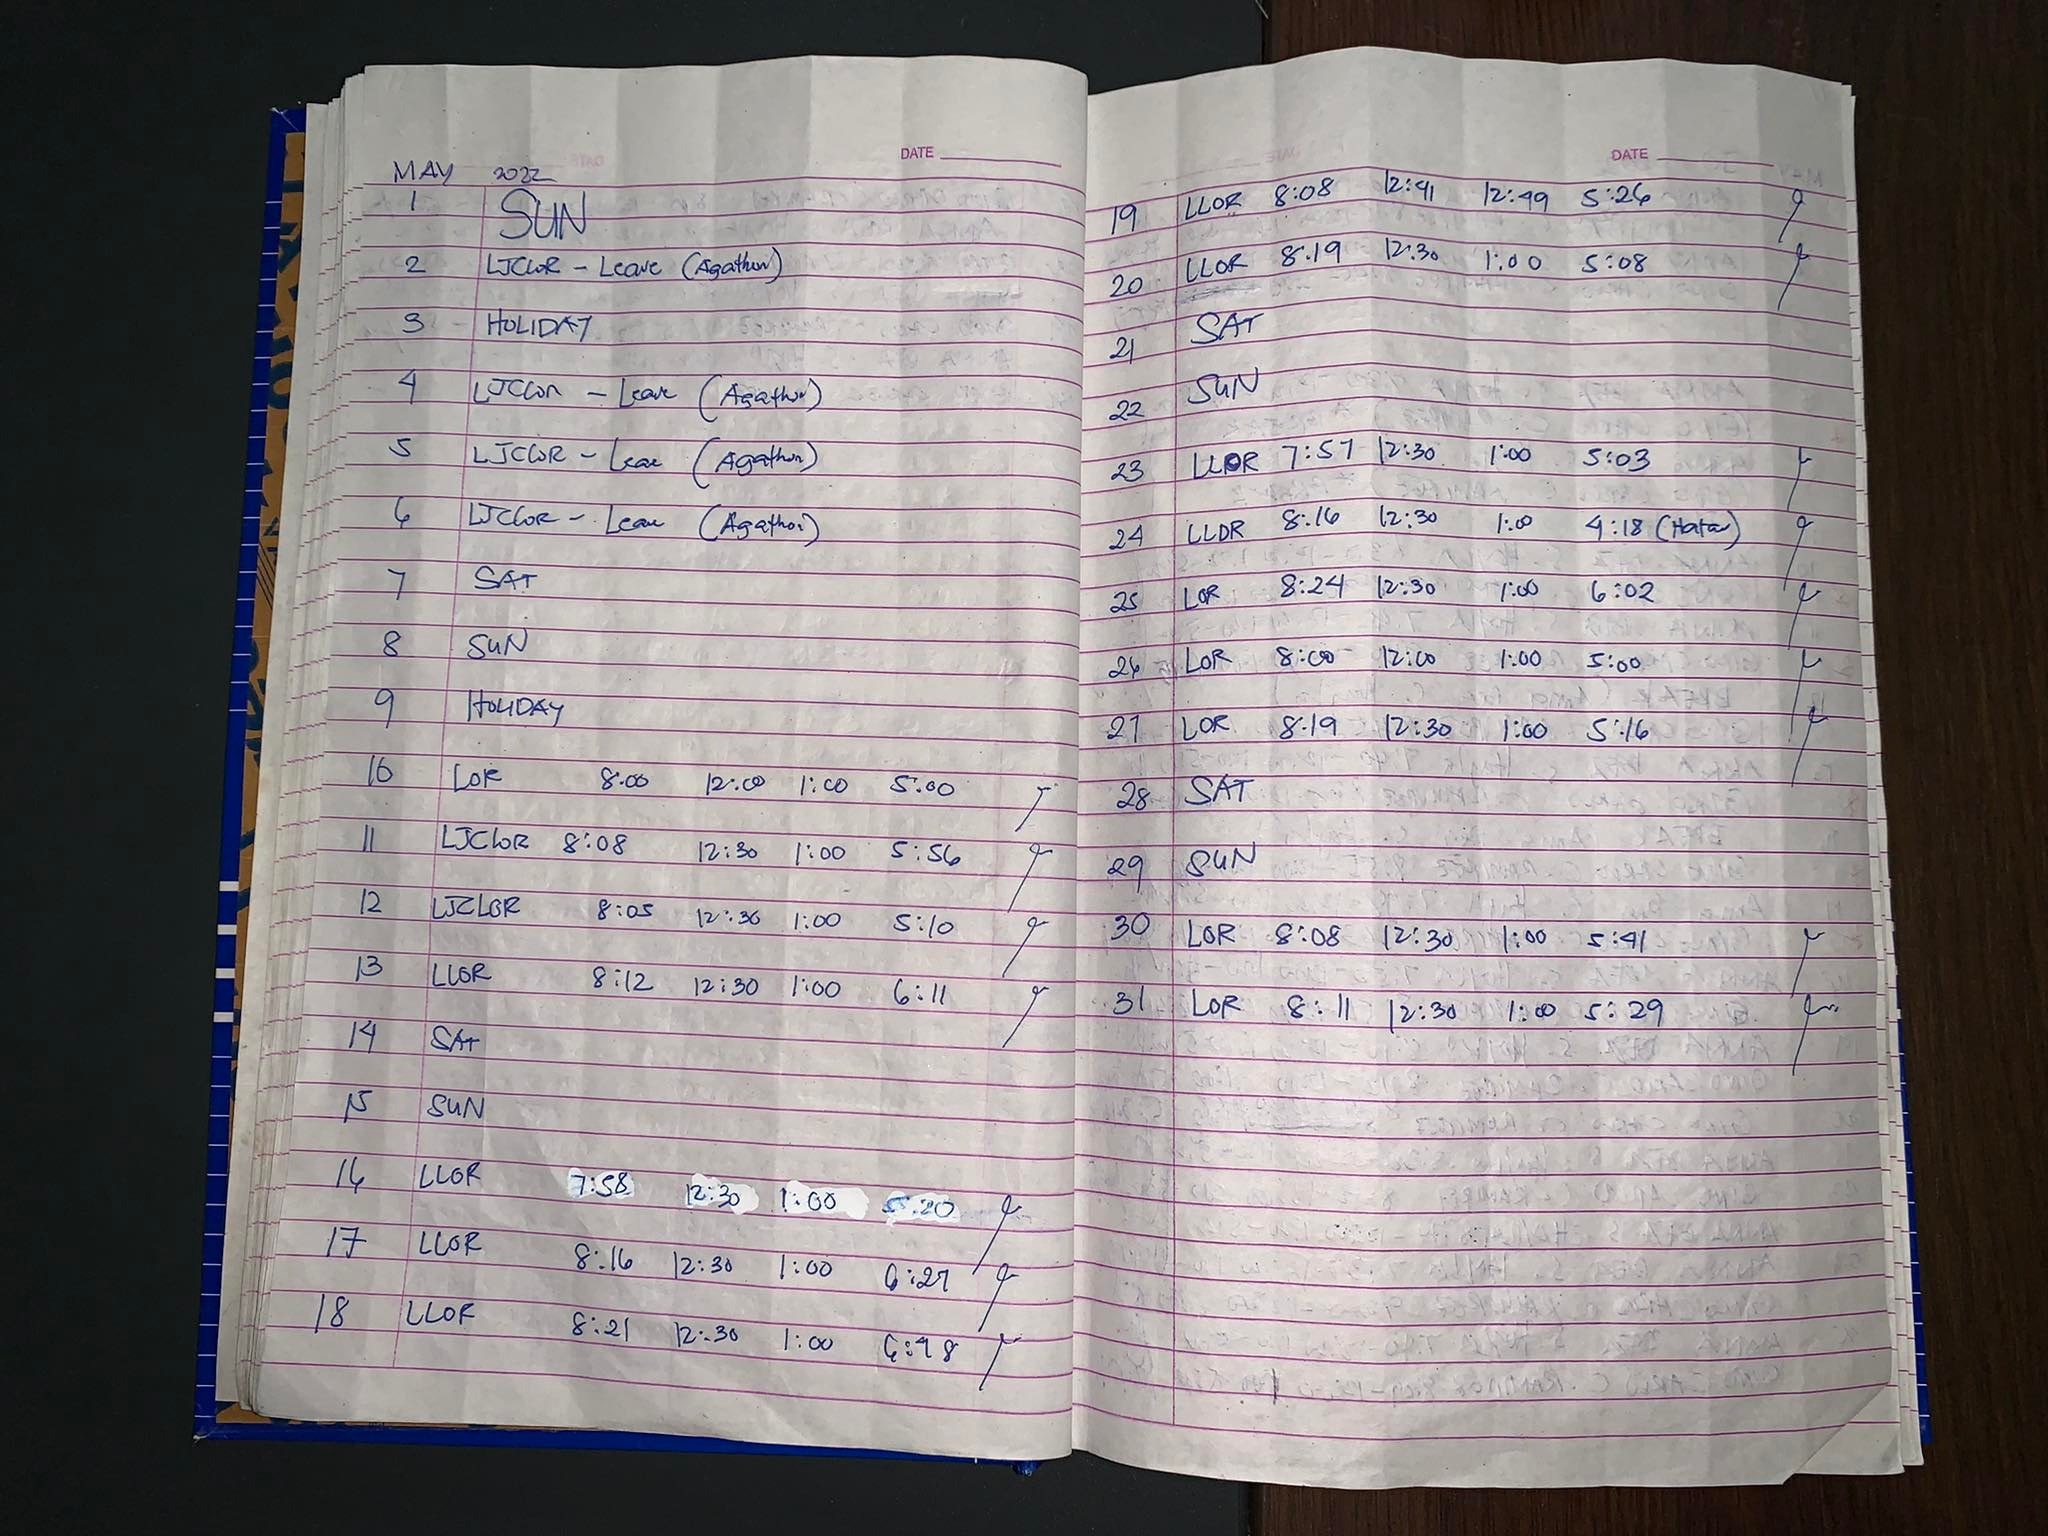 DATE
MAY 2022
1 SUN
2 LJCLOR - Leave (Agathon)
3 HOLIDAY
4 LJCLOR - Leave (Agathon)
5 LJCLOR - Leave (Agathon)
6 LJCLOR - Leave (Agathon)
7 SAT
8 SUN
9 HOLIDAY
10 LOR 8:00 12:00 1:00 5:00
11 LJCLOR 8:08 12:30 1:00 5:56
12 LJCLOR 8:05 12:30 1:00 5:10
13 LLOR 8:12 12:30 1:00 6:11
14 SAT
15 SUN
16 LLOR 7:58 12:30 1:00 5:20
17 LLOR 8:16 12:30 1:00 6:27
18 LLOR 8:21 12:30 1:00 6:48
DATE
19 LLOR 8:08 12:41 12:49 5:26
20 LLOR 8:19 12:30 1:00 5:08
21 SAT
22 SUN
23 LLOR 7:57 12:30 1:00 5:03
24 LLOR 8:16 12:30 1:00 4:18
25 LOR 8:24 12:30 1:00 6:02
26 LOR 8:00 12:00 1:00 5:00
27 LOR 8:19 12:30 1:00 5:16
28 SAT
29 SUN
30 LOR 8:08 12:30 1:00 5:41
31 LOR 8:11 12:30 1:00 5:29